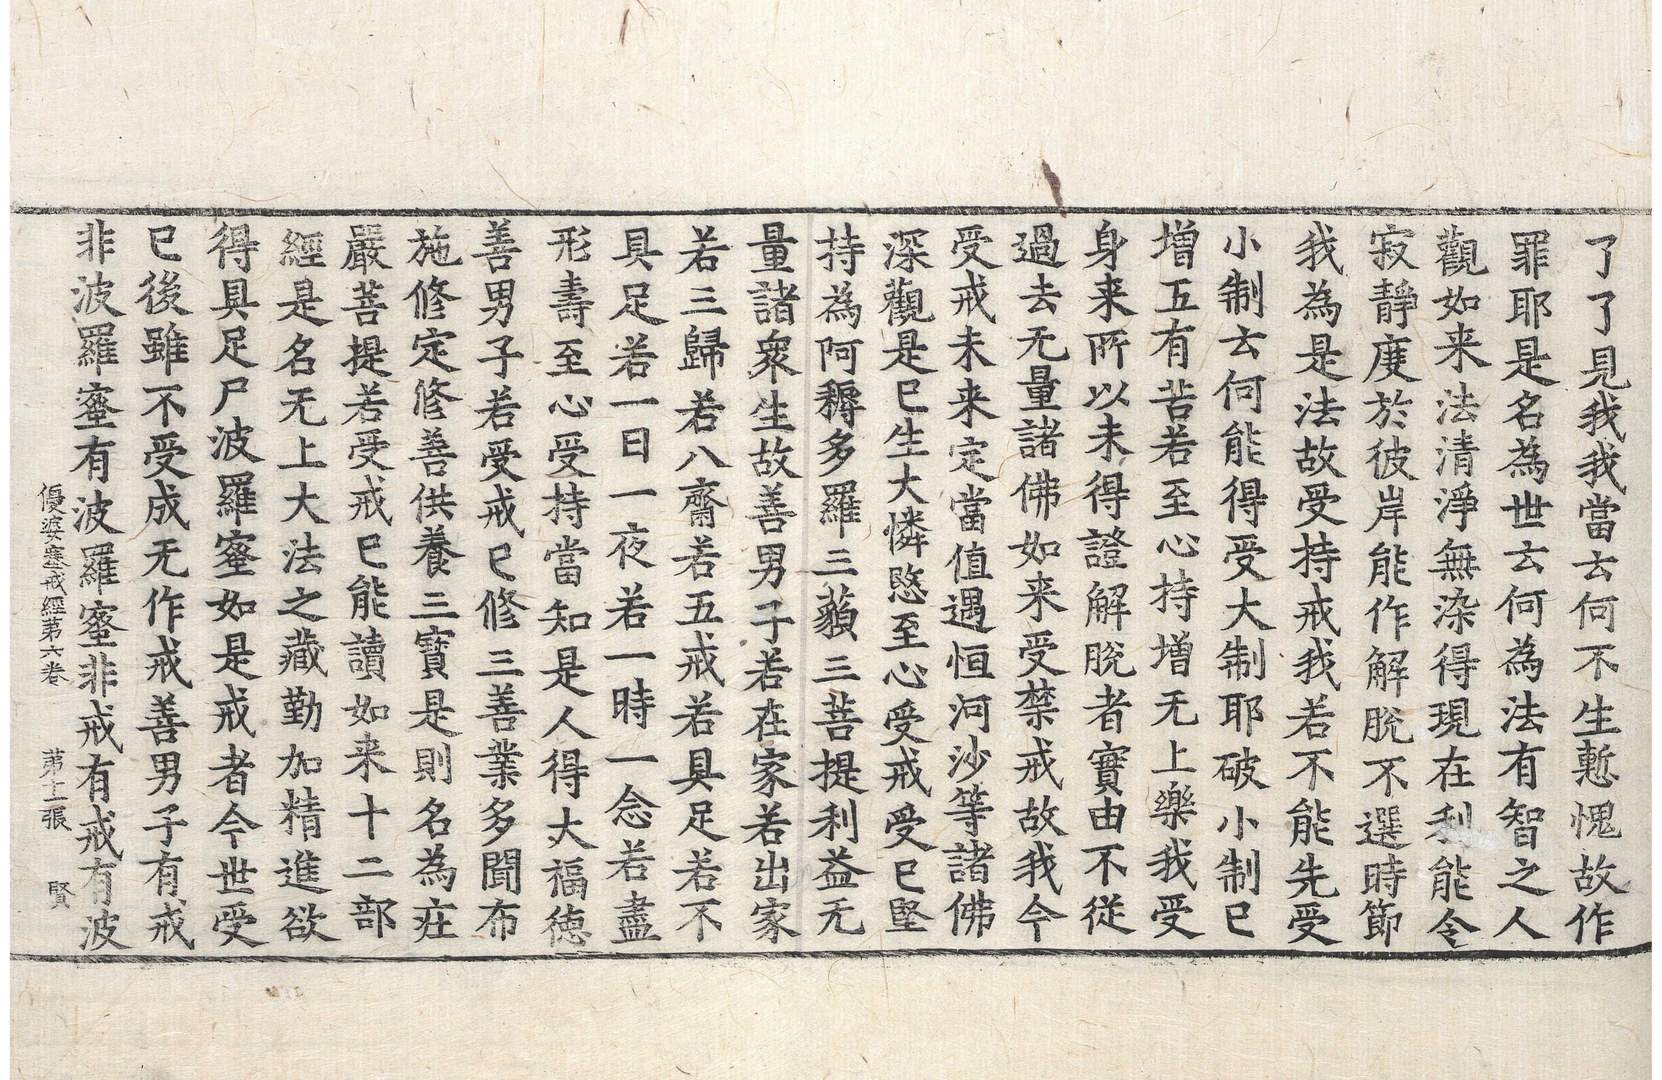 了了見我我當去何不生慙愧故作
罪耶是名為世去何為法有智之人
觀如来法清淨無染得現在利能令
寂靜度於彼岸能作解脫不選時節
我為是法故受持戒我若不能先受
小制去何能得受大制耶破小制已
增五有苦若至心持增无上樂我受
身来所以未得證解脫者實由不從
過去无量諸佛如来受禁戒故我今
受戒未来定當值遇恒河沙等諸佛
深觀是已生大憐愍至心受戒受已堅
持為阿耨多羅三藐三菩提利益无
量諸衆生故善男子若在家若出家
若三歸若八齋若五戒若具足若不
具足若一日一夜若一時一念若盡
形壽至心受持當知是人得大福德
善男子若受戒已修三善業多聞布
施修定修善供養三寶是則名為莊
嚴菩提若受戒已能讀如来十二部
經是名无上大法之藏勤加精進欲
得具足尸波羅蜜如是戒者今世受
已後雖不受成无作戒善男子有戒
非波羅蜜有波羅蜜非戒有戒有波
優婆塞戒經第六卷 第十一張 賢